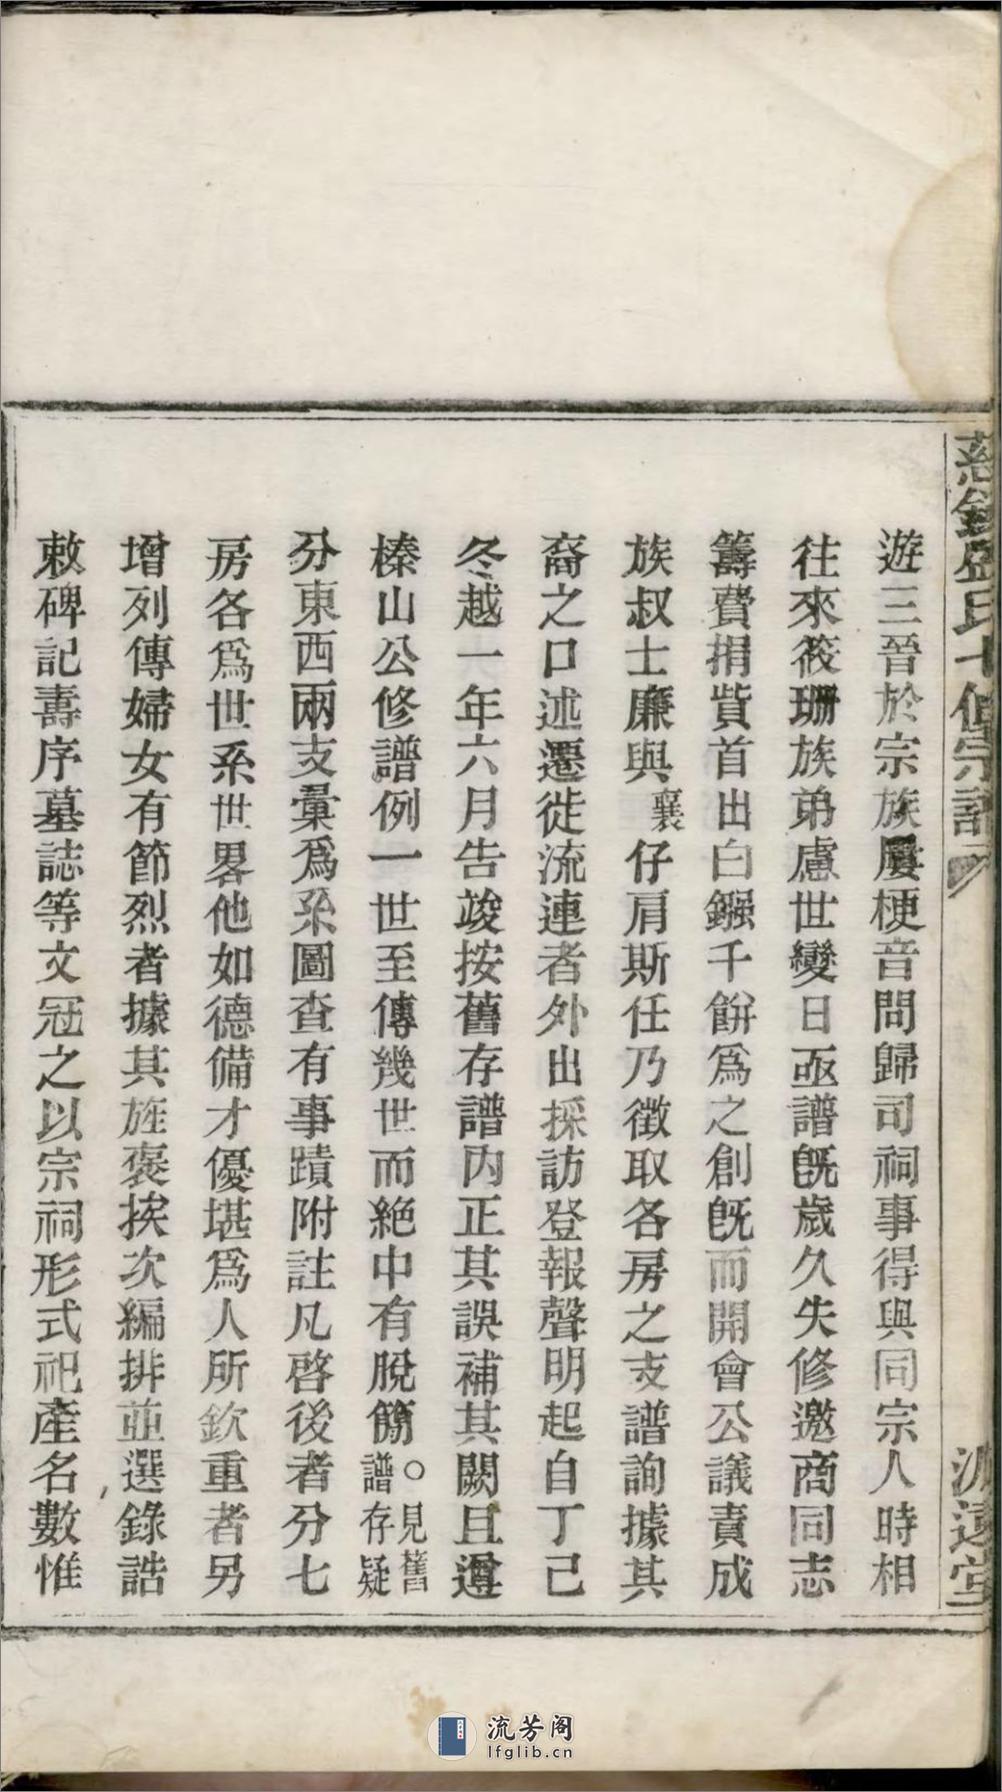 遊三晉於宗族屢梗音問歸司祠事得與同宗人時相
往來筱珊族弟慮世變日亟譜旣歲久失修邀商同志
籌費捐貲首出白鏹千餅爲之創旣而開會公議責成
族叔士廉與襄仔肩斯任乃徵取各房之支譜詢據其
裔之口述遷徙流連者外出採訪登報聲明起自丁己
冬越一年六月告竣按舊存譜內正其誤補其闕且遵
榛山公修譜例一世至傳幾世而絶中有脫簡○見舊譜存疑
分東西兩支彙爲系圖查有事蹟附註凡啓後者分七
房各爲世系世畧他如德備才優堪爲人所欽重者另
增列傳婦女有節烈者據其旌褒挨次編排並選錄誥
敕碑記壽序墓誌等文冠之以宗祠形式祀產名數惟
氏
宗譜
遠堂
流芳阁
lfglib.cn